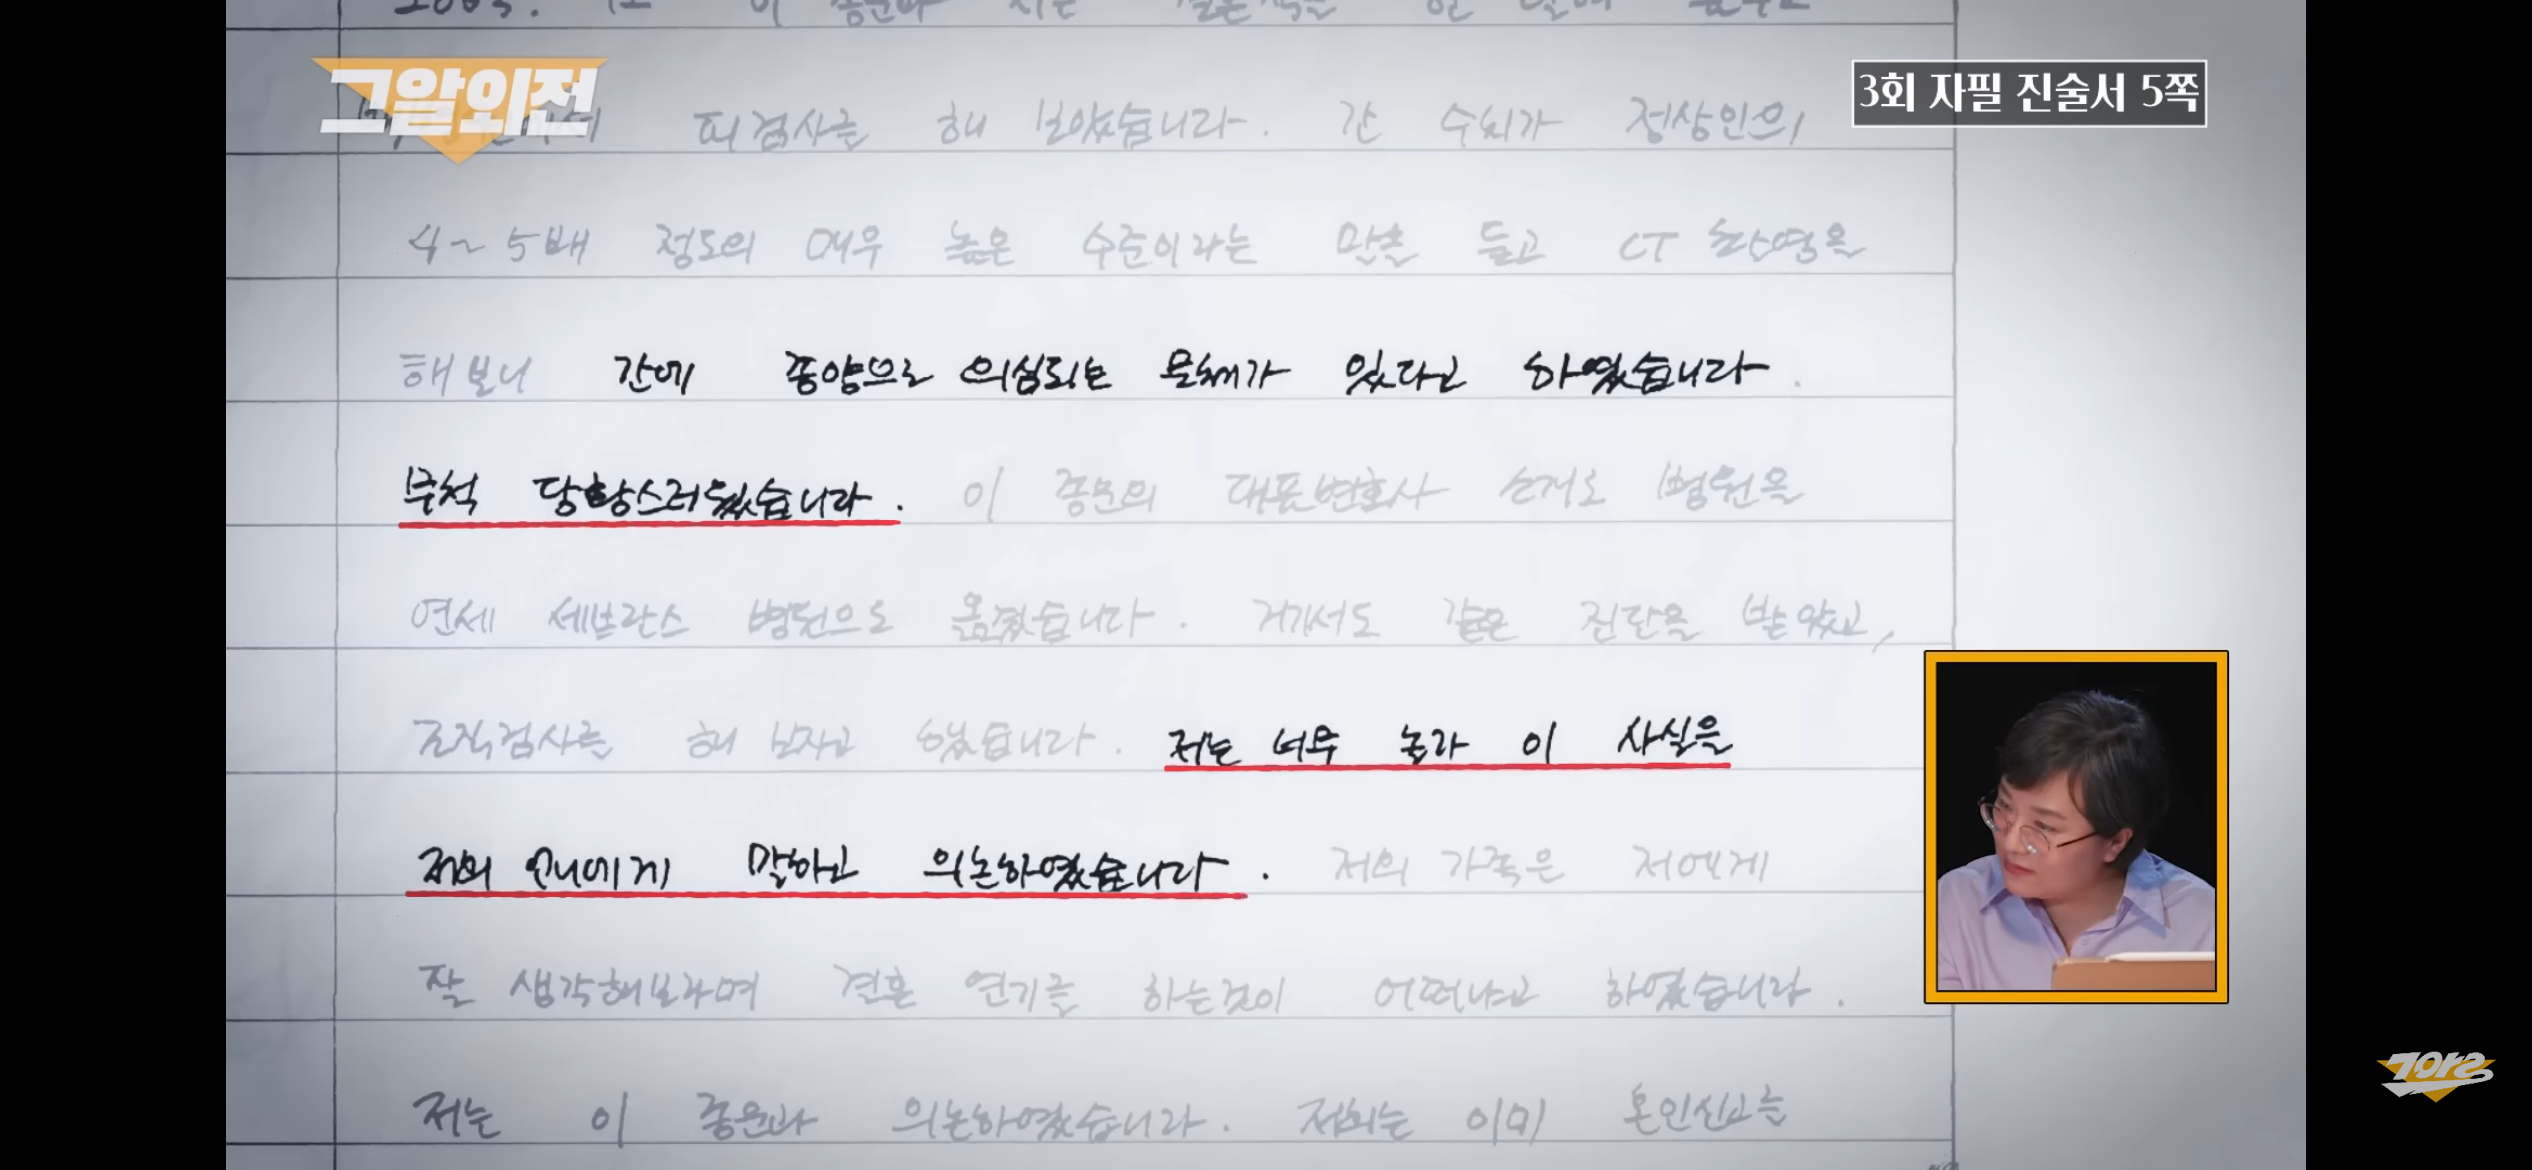 그알외전
3회 자필 진술서 5쪽
피검사를 해 보았습니다. 간 수치가 정상인의
4~5배 정도의 매우 높은 수준이라는 말을 듣고 CT 촬영을
해보니 간에 종양으로 의심되는 물체가 있다고 하였습니다.
무척 당황스러웠습니다. 이 종운의 대표변호사 소개로 병원을
연세 세브란스 병원으로 옮겼습니다. 거기서도 같은 진단을 받았고,
조직검사를 해 보자고 했습니다. 저는 너무 놀라 이 사실을
저의 언니에게 말하고 의논하였습니다. 저의 가족은 저에게
잘 생각해보라며 결혼 연기를 하는것이 어떠냐고 하였습니다.
저는 이 종운과 의논하였습니다. 저희는 이미 혼인신고를